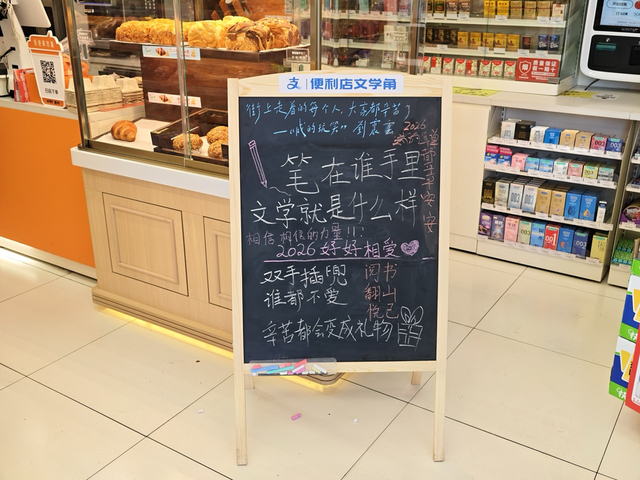 支 便利店文学角
街上走着的每个人，大家都辛苦了
笔在谁手里
文学就是什么样
相信相信的力量!!!
2026 好好相爱
双手插兜
谁都不爱
阅书
翻山
悦己
辛苦都会变成礼物
2026
平安